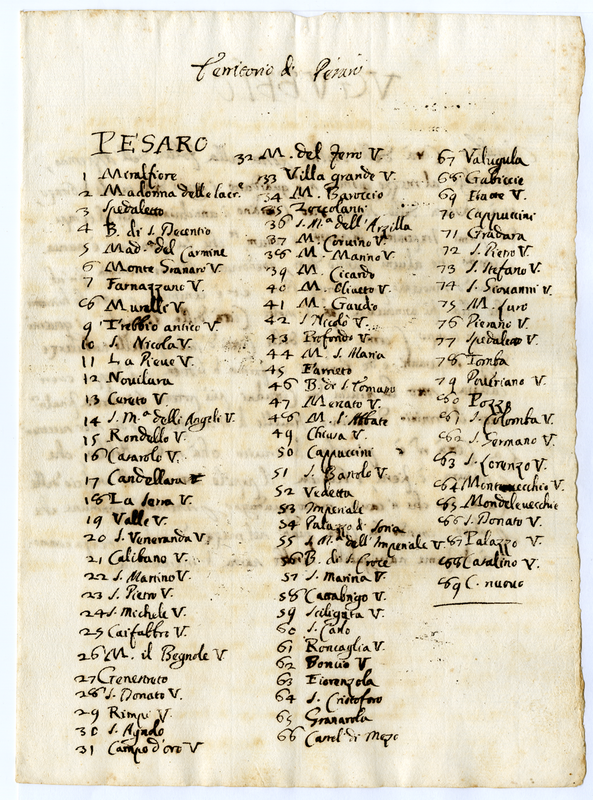 Territorio di Pesaro
PESARO
1 Miralfiore
2 Madonna delle lacr.e
3 Spedaletto
4 B. di S. Decentio
5 Mad.a del Carmine
6 Monte Granaro V.
7 Farnazzano V.
8 Murelle V.
9 Trebbio antico V.
10 S. Nicola V.
11 La Pieve V.
12 Novilara
13 Cereto V.
14 S. M.a delli Angeli V.
15 Rondello V.
16 Casarolo V.
17 Candellara
18 La Serra V.
19 Valle V.
20 S. Veneranda V.
21 Calibano V.
22 S. Marino V.
23 S. Piero V.
24 S. Michele V.
25 Caifabbro V.
26 M. il Begnole V.
27 Genestreto
28 S. Donato V.
29 Rimpi V.
30 S. Agnolo
31 Campo d'oro V
32 M. del ferro V.
33 Villa grande V.
34 M. Baroccio
35 Zoccolanti
36 S. M.a dell'Arzilla
37 M. Corvino V.
38 M. Manno V.
39 M. Ciccardo
40 M. Oliveto V.
41 M. Gaudo
42 S Nicolò V.
43 Profondo V.
44 M. S. Maria
45 Farneto
46 B. di S. Tomaso
47 Menato V.
48 M. l'Abbate
49 Chiusa V.
50 Cappuccini
51 S. Bartolo V.
52 Vedetta
53 Imperiale
54 Palazzo d.
55 S. M. dell'Imperiale V.
56 B. di S. Croce
57 S. Marina V.
58 Casabrigo V.
59 Siligata V.
60 S. Cano
61 Roncaglia V.
62 Boncio V.
63 Fiorenzola
64 S. Cristoforo
65 Granarola
66 Castel di Mezo
67 Valugula
68 Gabiccie
69 V.
70 Cappuccini
71 Gradara
72 S. Piero V.
73 S. Stefano V.
74 S. Giovanni V.
75 M. Luro
76 Pierano V.
77 Spedaletto V.
78 Tomba
79 V.
80 Pozzo
81 S. Colomba V.
82 S. Germano V.
83 S. Lorenzo V.
84 Montevecchio V.
85 Mondelevecchie
86 S. Donato V.
87 Palazzo V.
88 Casalino V.
89 C. nuovo